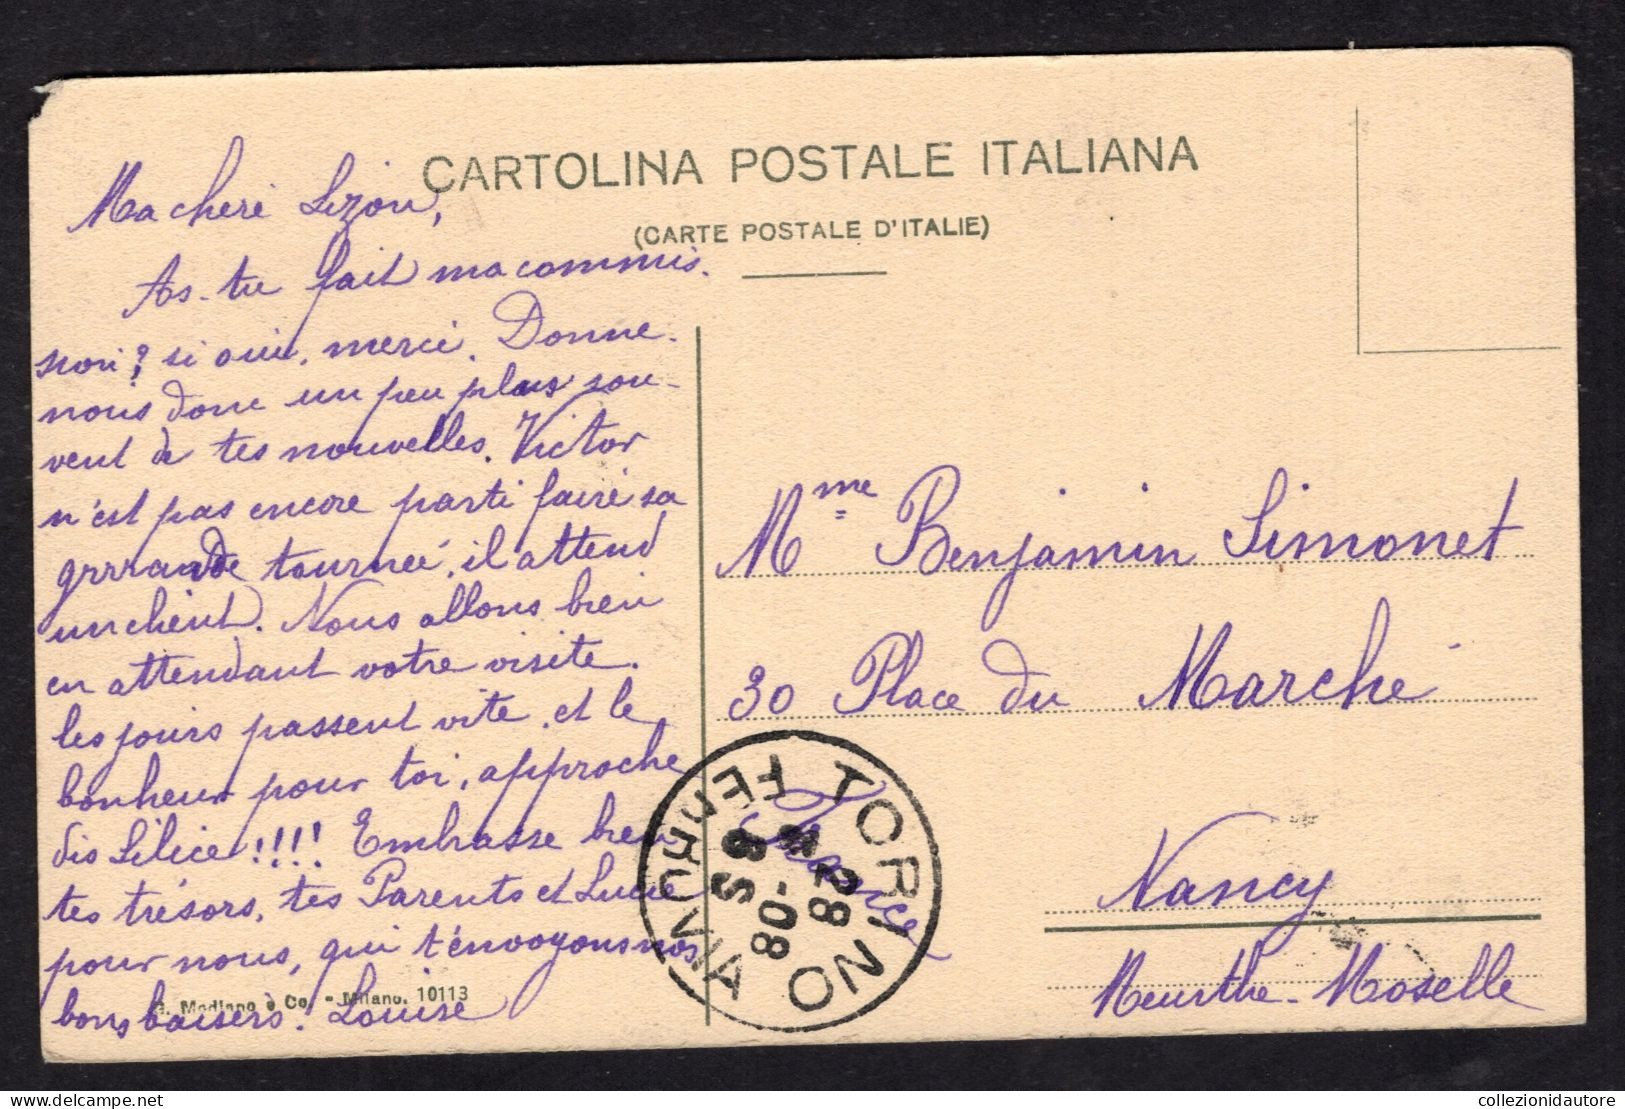 CARTOLINA POSTALE ITALIANA
(CARTE POSTALE D'ITALIE)
Ma cheré Lizon,
As-tu fait ma commis.
sion? si oui, merci. Donne-
nous donc un peu plus sou-
vent de tes nouvelles. Victor
n'est pas encore parti faire sa
grrrande tournée, il attend
un client. Nous allons bien
en attendant votre visite.
les jours passent vite, et le
bonheur pour toi, approche
dis Lilice!!!! Embrasse bien
tes trésors, tes Parents et Lucie
pour nous, qui t'envoyons nos
bons baisers. Louise
G. Modiano e Co. - Milano. 10113
Mme Benjamin Simonet
30 Place du Marché
Nancy
Meurthe-Moselle
France
TORINO FERROVIA
28 2-08
8 S
collezionidautore